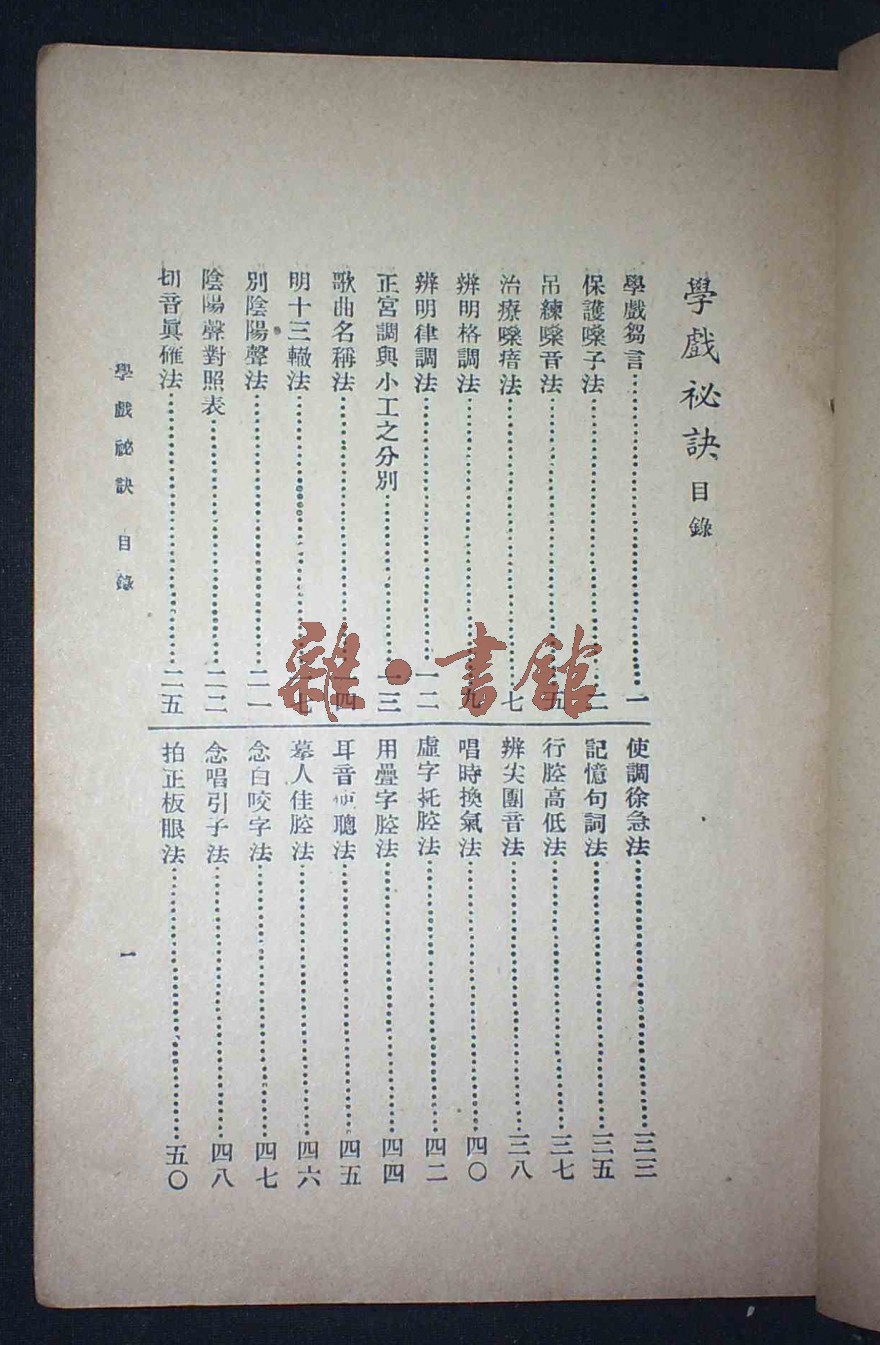 學戲祕訣 目錄
學戲芻言 一
保護嗓子法 二
吊練嗓音法 五
治療嗓瘖法 七
辨明格調法 九
辨明律調法 一二
正宮調與小工之分別 一三
歌曲名稱法 一四
明十三轍法 一七
別陰陽聲法 二一
陰陽聲對照表 二二
切音眞確法 二五
使調徐急法 三三
記憶句詞法 三五
行腔高低法 三七
辨尖團音法 三八
唱時換氣法 四〇
虛字托腔法 四二
用疊字腔法 四四
耳音 聰法 四五
摹人佳腔法 四六
念白咬字法 四七
念唱引子法 四八
拍正板眼法 五〇
學戲祕訣 目錄
一
雜·書館